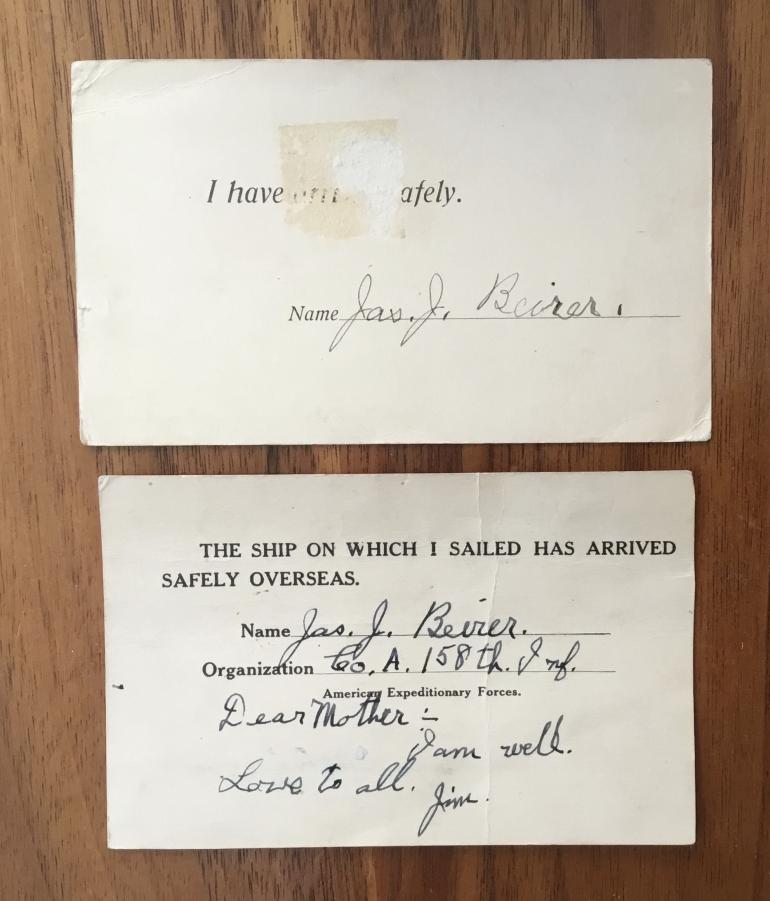 I have safely.
Name Jas. J. Beirer.
THE SHIP ON WHICH I SAILED HAS ARRIVED
SAFELY OVERSEAS.
Name Jas. J. Beirer.
Organization Co. A. 158th. Inf.
American Expeditionary Forces.
Dear Mother :-
I am well.
Love to all.
Jim.